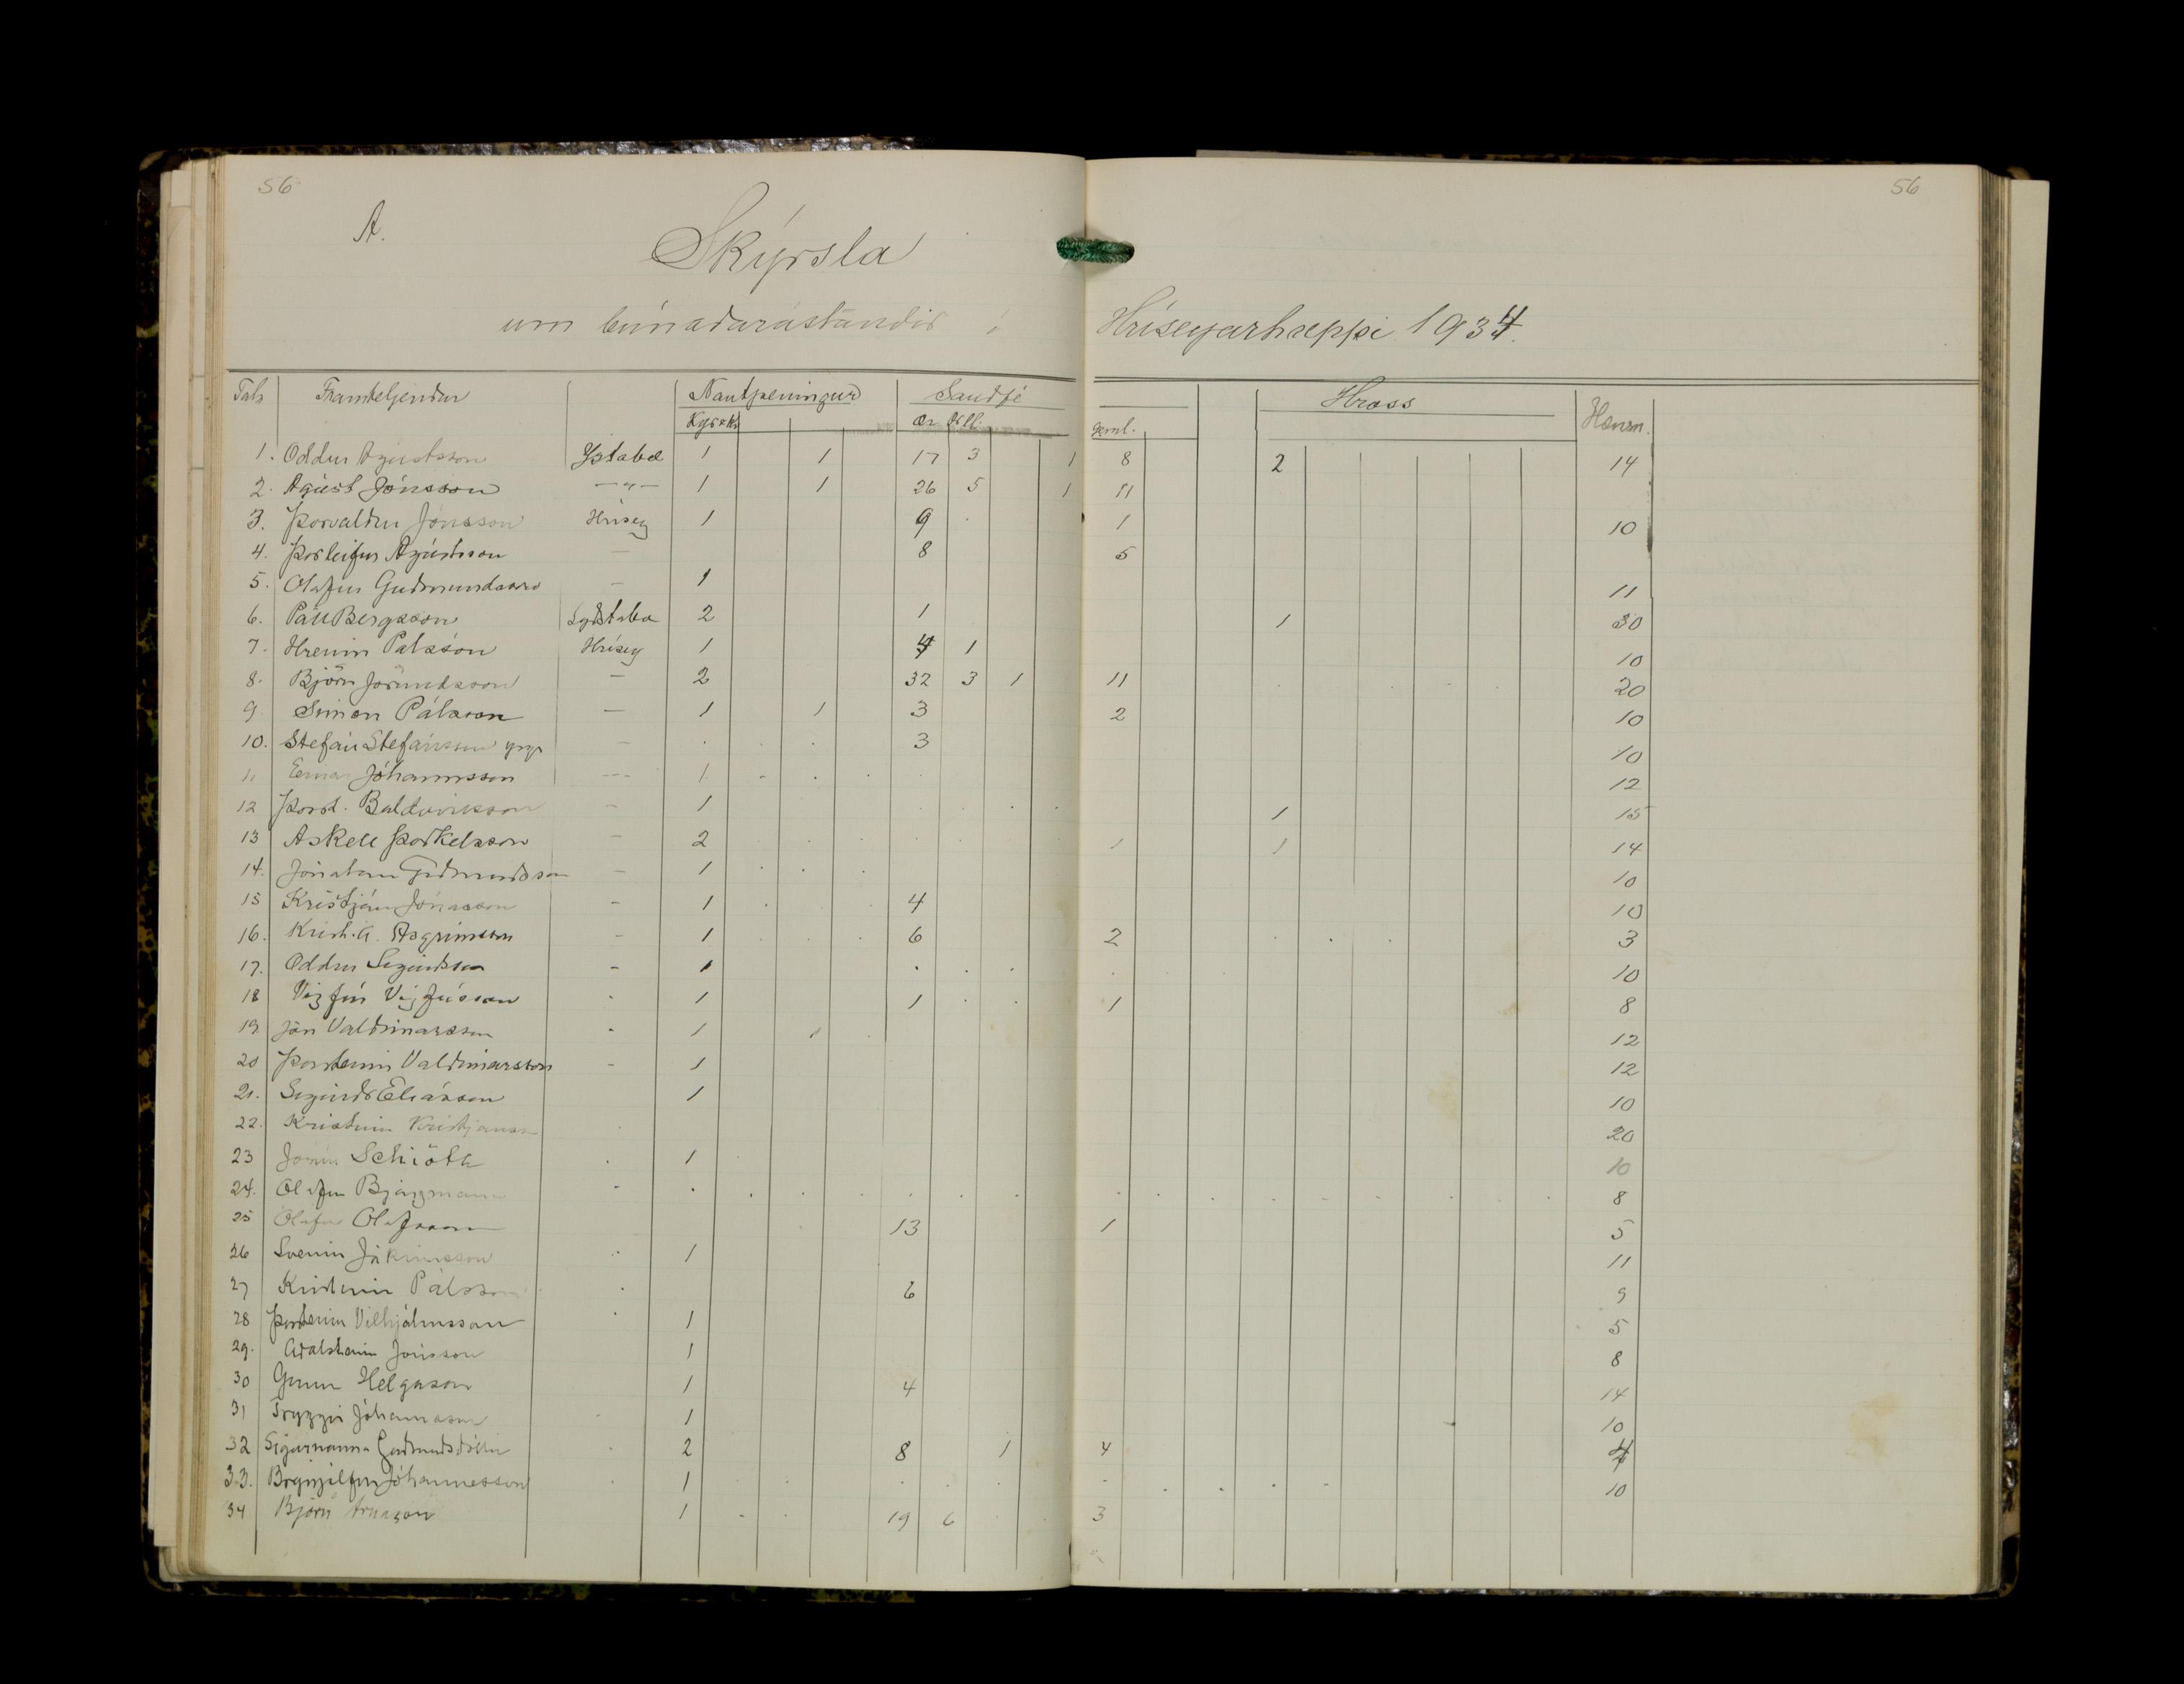 56 56
A.
Skýrsla
um búnaðarástandið í Hríseyjarhreppi 1934.
Tala Framteljendur Nautpeningur Sauðfé Hross Hænsn.
Kýr Ær geml.
1. Oddur Ágústsson Ystabæ 1 1 17 3 1 8 2 14
2. Ágúst Jónsson —"— 1 1 26 5 1 11
3. Þorvaldur Jónsson Hrísey 1 9 1 10
4. Þorleifur Ágústsson — 8 5
5. Ólafur Guðmundsson — 1 11
6. Páll Bergsson Syðstabæ 2 1 1 30
7. Hreinn Pálsson Hrísey 1 4 1 10
8. Björn Jörundsson — 2 32 3 1 11 20
9 Símon Pálsson — 1 1 3 2 10
10. Stefán Stefánsson yngr — 3 10
11 Einar Jóhannsson --- 1 12
12 Þorst. Baldvinsson - 1 1 15
13 Áskell Þorkelsson - 2 1 1 14
14. Jónatan Guðmundsson - 1 10
15 Kristján Jónasson - 1 4 10
16. Ásgrímsson - 1 6 2 3
17. Oddur Sigurðsson - 1 10
18 Vigfús Vigfússon 1 1 1 8
19 Jón Valdimarsson - 1 1 12
20 Þorsteinn Valdimarsson - 1 12
21. Sigurður Elíasson 1 10
22. Kristinn Kristjánsson 20
23 Jónína Schiöth 1 10
24. Ólafur Bjargmann - 8
25 Ólafur Ólafsson 13 1 5
26 Sveinn Jákimsson 1 11
27 Kristinn Pálsson 6 9
28 Þorsteinn Vilhjálmsson 1 5
29. Aðalsteinn Jónsson 1 8
30 Helgason 1 4 14
31 Tryggvi Jóhannsson 1 10
32 Sigurnanna Guðmundsdóttir 2 8 1 4 4
33. Brynjólfur Jóhannesson 1 10
34 Björn Árnason 1 19 6 3